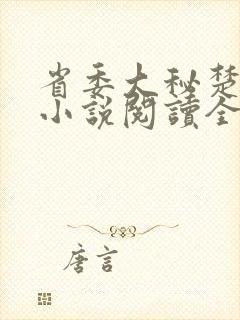 省委大秘楚
小說閱讀全
唐言